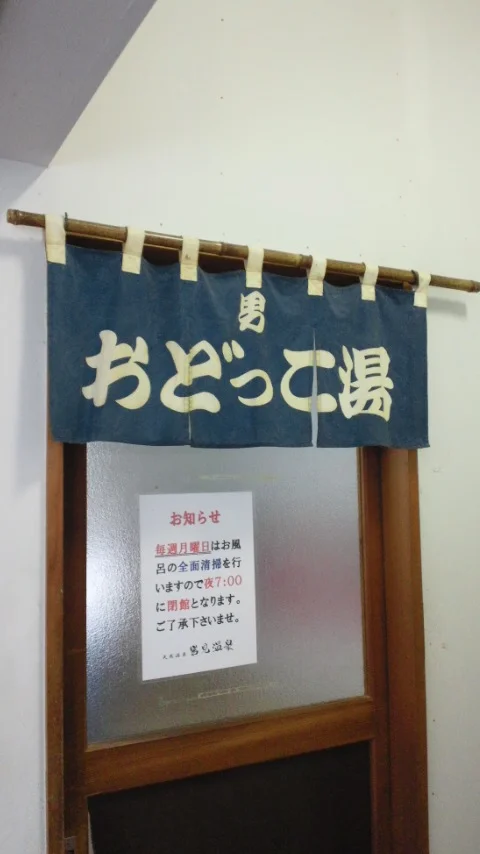 男
おどっこ湯
お知らせ
毎週月曜日はお風
呂の全面清掃を行
いますので夜7:00
に閉館となります。
ご了承下さいませ。
天然温泉